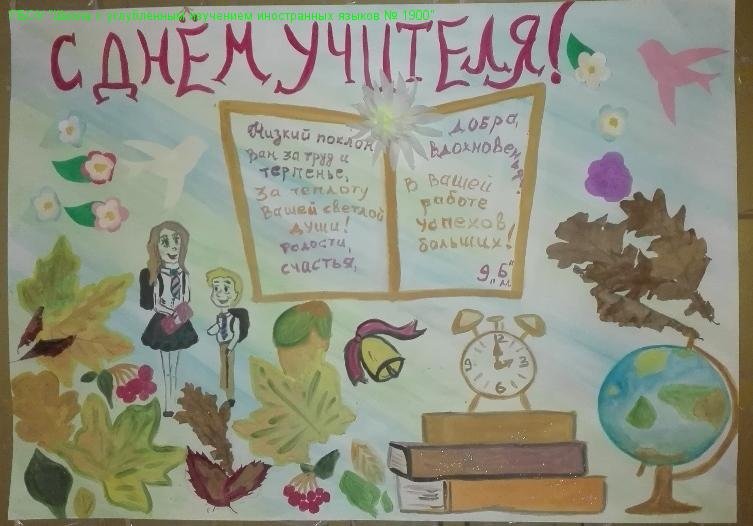 ГБОУ "Школа с углубленным изучением иностранных языков № 1900"
С ДНЁМ УЧИТЕЛЯ!
Низкий поклон
Вам за труд и
терпенье,
За теплоту
Вашей светлой
души!
Радости,
счастья,
Добра,
вдохновенья!
В вашей
работе
успехов
больших!
9 „Б"
12
9
3
6